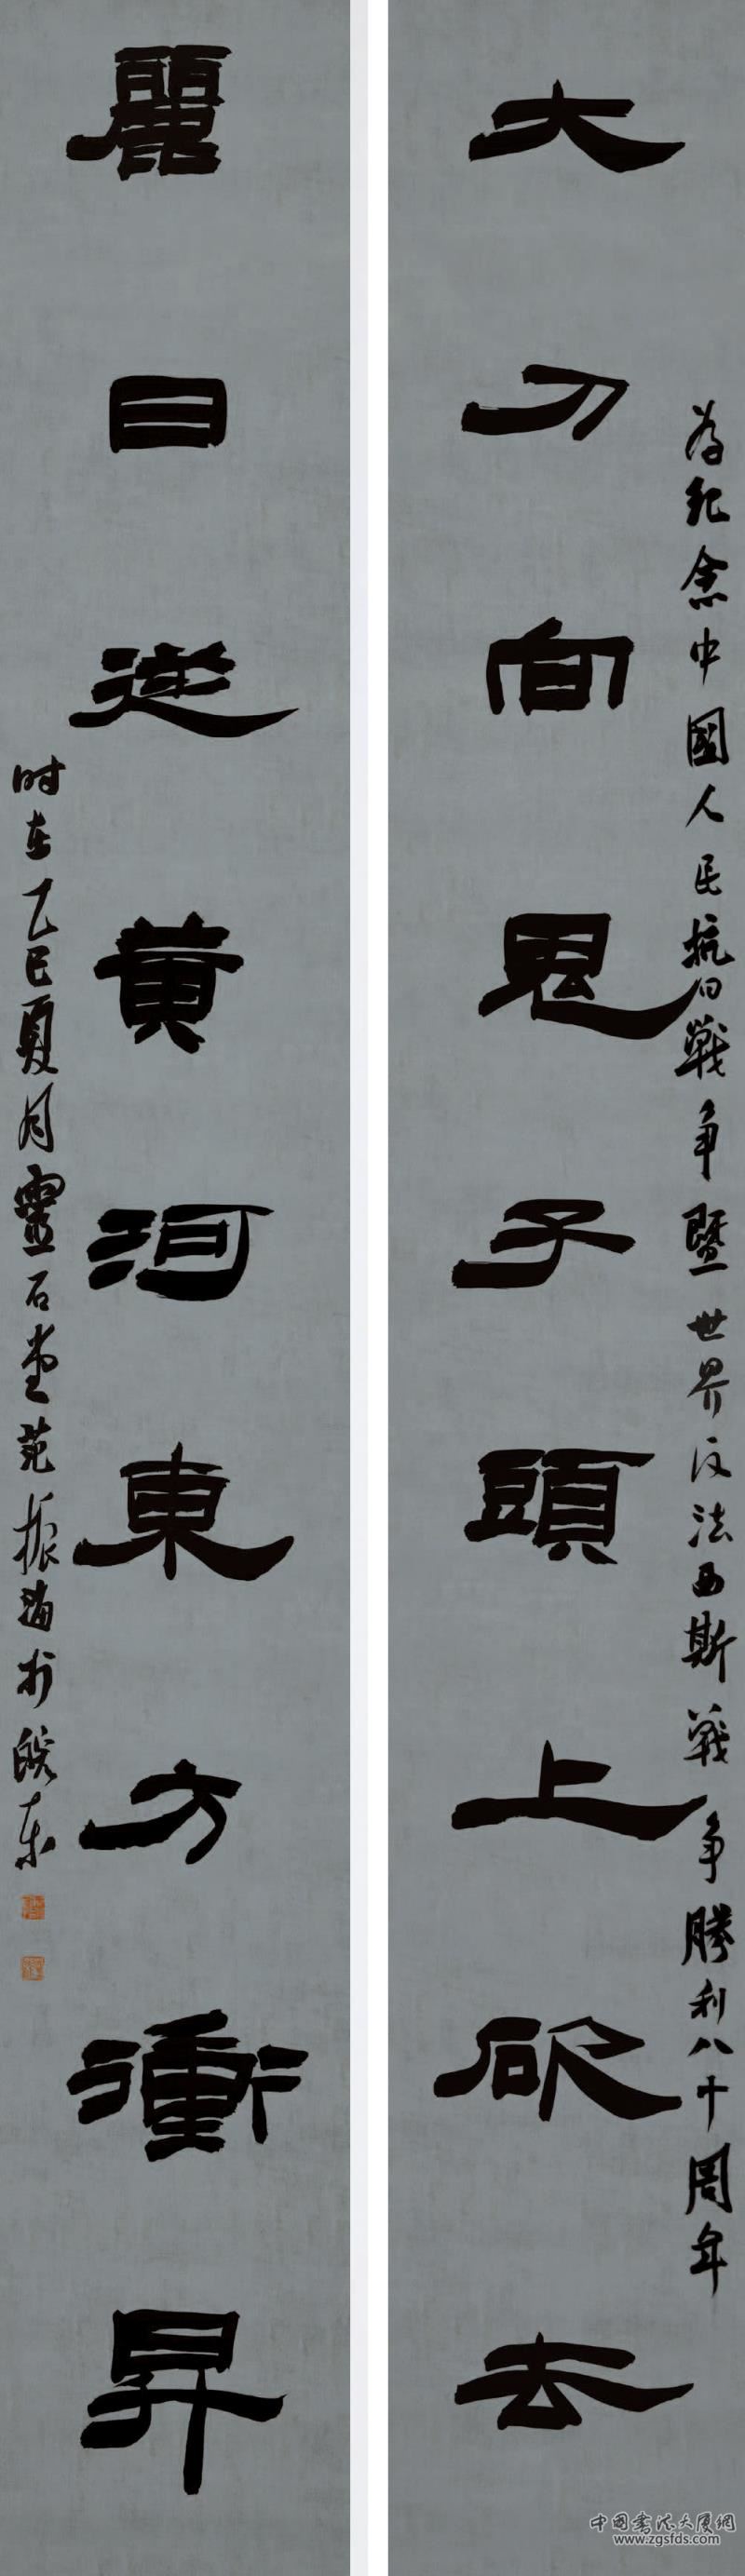 大刀向鬼子頭上砍去
为紀念中國人民抗日戰争暨世界反法西斯戰争勝利八十周年
麗日從黃河東方衝昇
时在乙巳夏月靈石堂苑振海於皖东
中国書法大厦網
www.zgsfds.com